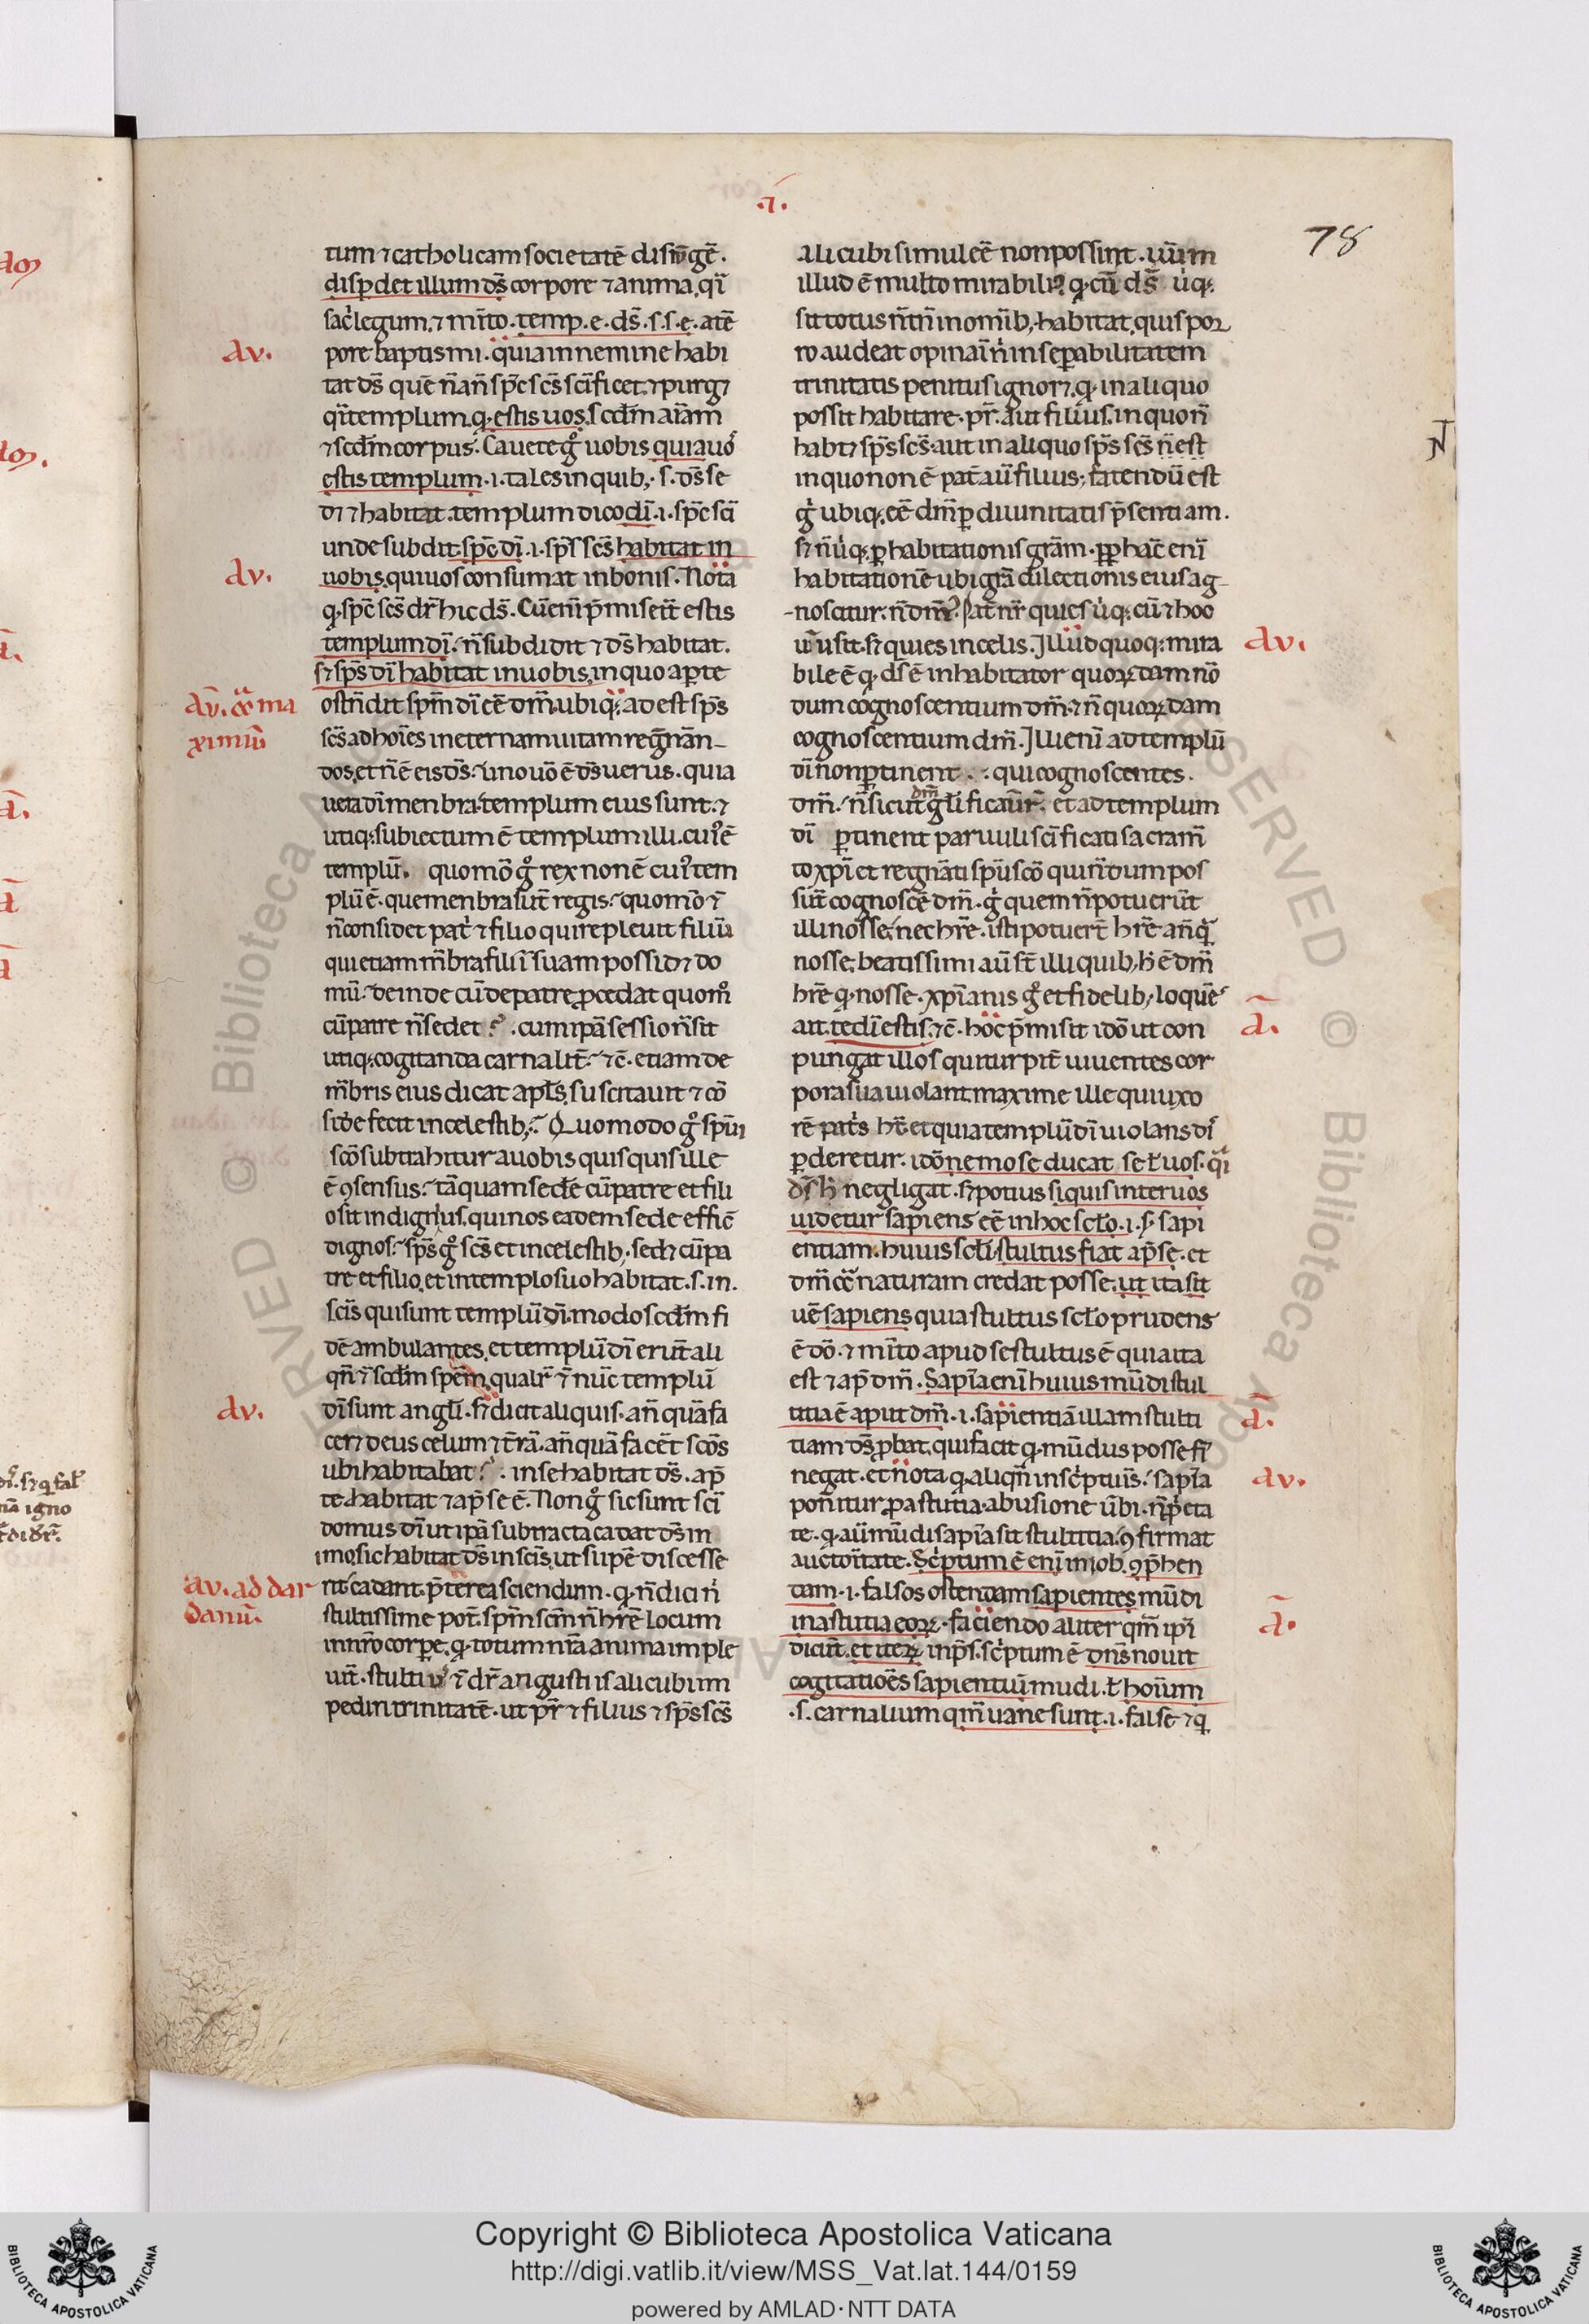 .⁊.
78
tum ⁊ catholicam societatē disiūgē̄.
disp̲det illum d̄s corpore ⁊ anima, qi̅
sac̍legum, ⁊ m̄ito. temp. e. ds̄. s. s. e. a tē
pore baptismi. q̈uia in nemine habi
tat ds̄ quē n̄ an̄ sp̄c sc̄s sc̄ificet ⁊ purg⁊
qi̅ templum. q. estis uos, scd̄m aīam
⁊ scd̄m corpus. Cauete gͦ uobis quia uo᷒
estis templum .i. tales in quib; s. ds̄ se
d⁊ ⁊ habitat templum dico di̅ .i. sp̄c sc̄i
unde subdit sp̄c di̅ .i. sp̄s sc̄s habitat in
uobis, qui uos consumat in bonis. Nota
q. sp̄c sc̄s dr̄ hic ds̄. Cū eni̅ p̄misett̄ estis
templum di̅. n̄ subdidit ⁊ ds̄ habitat.
s⁊ sp̄s di̅ habitat in uobis, in quo ap̲te
ostn̄dit sp̄m di̅ ee̅ dm̄. ubiq; adest sp̄s
sc̄s ad hoīes in eternam uitam regn̄an-
dos, et n̄ ē eis ds̄. uno uō ē ds̄ uerus. quia
uera di̅ menbra templum eius sunt. ⁊
utiq; subiectum ē templum illi. cui᷒ ē
templū. quomō gͦ rex non ē cui᷒ tem
plū ē. quem enbra sūt regis. quomō ⁊
n̄ considet pat̍ ⁊ filio qui repleuit filiū
qui etiam m̄bra filii in suam possid⁊ do
mū. deinde cū de patre p̲cedat quom̊
cū patre n̄ sedet. cum ip̄a sessio n̄ sit
utiq; cogitanda carnalit̄. ⁊ē. etiam de
m̄bris eius dicat apl̄s, suscitauit ⁊ cō
sid̵e fecit in celestib;. Quomodo gͦ sp̄ui
sc̄o subtrahitur a uobis quisquis ille
ē ꝯsensus. tāquam sed̵e cū patre et fili
o sit indignus, qui nos eadem sede effic̄
dignos. sp̄s gͦ sc̄s et in celestib; sed⁊ cū pa
tre et filio, et in templo suo habitat. s. in.
sc̄is qui sunt templū di̅. modo scd̄m fi
dē ambulantes, et templū di̅ erūt ali
qn̄ ⁊ scd̄m spēm, qualr̄ ⁊ nūc templū
di̅ sunt angl̄i. s⁊ dicit aliquis. an̄ quā fa
cer⁊ deus celum ⁊ t̄rā. an̄ quā facēt sc̄os
ubi habitabat. in se habitat ds̄. ap̄
te habitat ⁊ ap̄ se ē. Non gͦ sic sunt sc̄i
domus di̅ ut ip̄a subtracta cadat ds̄ in
imo, sic habitat ds̄ in sc̄is, ut si ip̄e discesse
rit cadant. p̄terea sciendum. q. n̄ dici n̄
stultissime pot̄. sp̄m sc̄m n̄ hr̄e locum
in nr̄o corpe. q. totum nr̄a anima imple
uit̄. stulti᷒ ⁊ dr̄ angustiis alicubi im
pediri trinitatē. ut pr̄ ⁊ filius ⁊ sp̄s sc̄s
alicubi simul eē non possint. uūm
illud ē multo mirabili᷒. q. cū ds̄ ūq;
sit totus n̄ tn̄ in omīb; habitat, quis por
ro audeat opinai̅ n̄ insep̲abilitatem
trinitatis penitus ignor⁊. q. in aliquo
possit habitare. pr̄. aut filius. in quo n̄
habt⁊ sp̄s sc̄s. aut in aliquo sp̄s sc̄s n̄ est
in quo non ē pat̍ aū filius; fatendū est
g̍ ubiq; eē dm̄ p̲ diuinitatis p̄sentiam.
s⁊ n̄ ūq; p̲ habitationis gr̄am. pp̲ hac̄ eni̅
habitationē ubi gr̄a dilectionis eius ag-
-noscitur. n̄ dm̄᷒. Pat̄ nr̄ qui es ūq; cū ⁊ hoc
ū usit. s⁊ qui es in celis. Illud quoq; mira
bile ē q. ds̄ ē inhabitator quorūdam nō
dum cognoscentium dm̄. ⁊ n̄ quorūdam
cognoscentium dm̄. Illi eni̅ ad templū
di̅ non p̲tinent. qui cognoscentes.
dm̄. n̄ sicut dm̄ gl̄ificaūr̄. et ad templum
di̅ p̲tinent paruuli sc̄ificati sacram̄
to xp̄i et regn̄ati sp̄ui sc̄o qui n̄dum pos
sūt cognosc̄e dm̄. g̍ quem n̄ potuerūt
illi nosse, nec hr̄e. isti potuert̄ hr̄e an̄ q̄
nosse. beatissimi aū st̄ illi quib; h̄ ē dm̄
hr̄e q. nosse. xp̄ianis gͦ et fidelib; loquēs
ait. te di̅ estis. ⁊ē. hoc p̄misit idō ut con
pungat illos qui turpit̄ uiuentes cor
pora sua uiolant maxime ille qui uxo
rē pat̍s hr̄. et quia templū di̅ uiolans di᷒
p̲deretur. idō nemo se ducat se t̄ uos. qi̅
ds̄ h̄ negligat. s⁊ potius si quis inter uos
uidetur sapiens eē in hoc scl̄o .i. s̄. sapi
entiam. huius scl̄i, stultus fiat ap̄ se. et
dm̄ cc̄ naturam credat posse, ut ita sit
uē sapiens quia stultus scl̄o prudens
ē dō. ⁊ m̄ito apud se stultus ē quia ita
est ⁊ ap̄ dm̄. Sapi̅a eni̅ huius mūdi stul
titia ē aput dm̄ .i. sapientiā illam stulti
tiam ds̄ p̲bat, qui facit q. mūdus posse f̄i
negat. et nota q. aliqn̄ in sc̍ptuīs. sapi̅a
pon̄itur p̲ astutia. abusione ūbi. n̄ p̲p̍eta
te. q. aū mūdi sapi̅a sit stultitia. ꝯfirmat
auctoritate. Sc̍ptum ē eni̅ in iob. ꝯp̄hen
dam .i. falsos ostendam sapientes mūdi
in astutia eorū. faciendo aliter qm̄ ip̄i
dicūt. et iterū in ps̄. sc̍ptum ē dn̄s nouit
cogitatioēs sapientiū mudi. t̄ hoi̅um
.s. carnalium qm̄ uane sunt .i. false ⁊ q̄
av.
av.
av̄. cc̄ ma
ximiū
av.
av. ad dar
daniū.
av.
ā.
ā.
av.
ā.
Copyright © Biblioteca Apostolica Vaticana
http://digi.vatlib.it/view/MSS_Vat.lat.144/0159
powered by AMLAD·NTT DATA
BIBLIOTECA APOSTOLICA VATICANA
BIBLIOTECA APOSTOLICA VATICANA